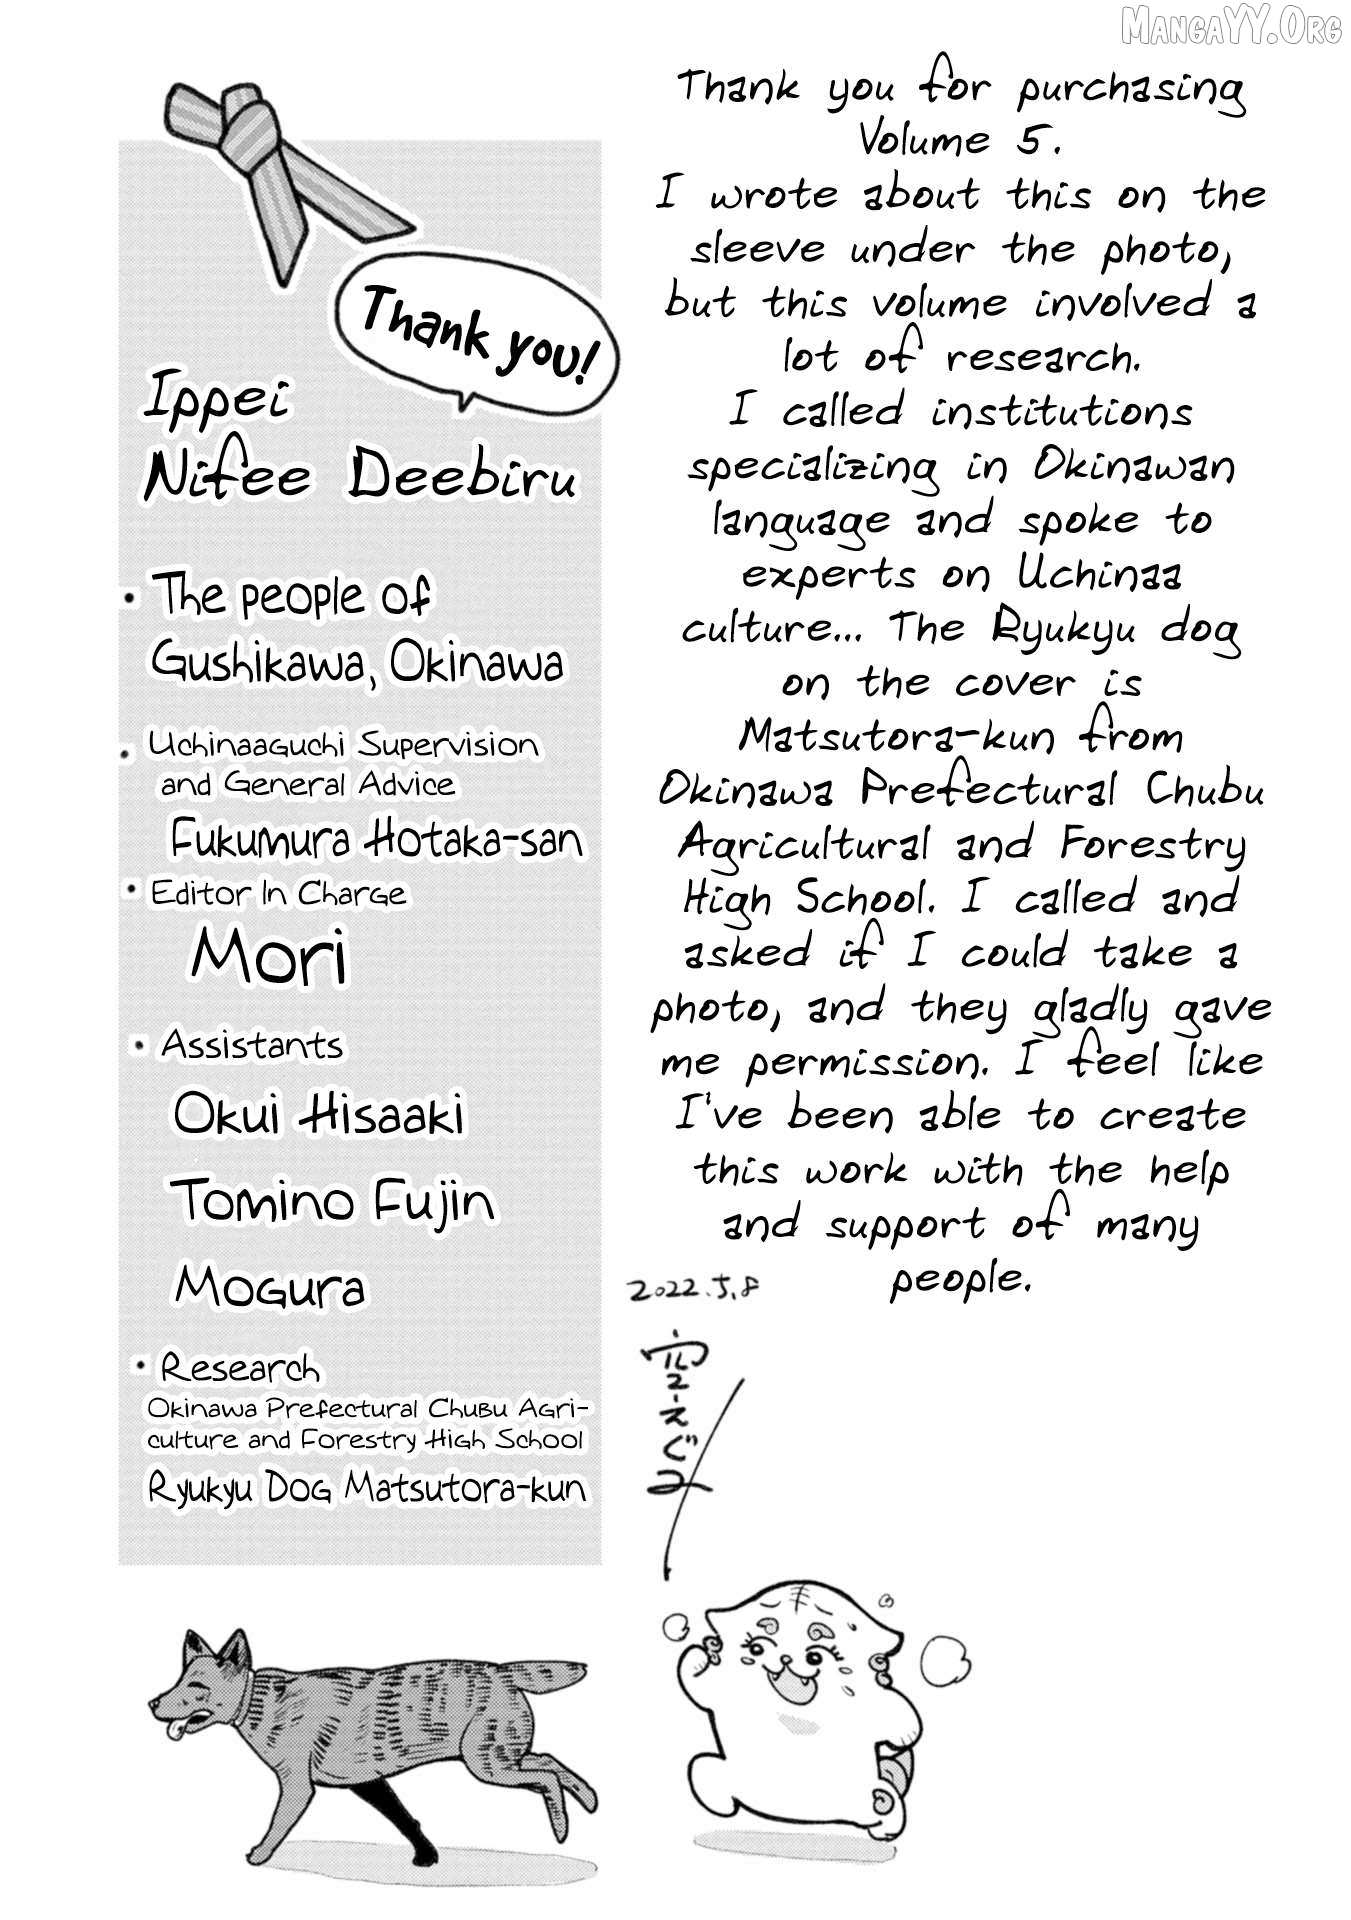 MangaYY.Org
Thank you for purchasing
Volume 5.
I wrote about this on the
sleeve under the photo,
but this volume involved a
lot of research.
I called institutions
specializing in Okinawan
language and spoke to
experts on Uchinaa
culture... The Ryukyu dog
on the cover is
Matsutora-kun from
Okinawa Prefectural Chubu
Agricultural and Forestry
High School. I called and
asked if I could take a
photo, and they gladly gave
me permission. I feel like
I've been able to create
this work with the help
and support of many
people.
2022.5.8
空えぐみ
Thank you!
Ippei
Nifee Deebiru
• The people of
Gushikawa, Okinawa
• Uchinaaguchi Supervision
and General Advice
Fukumura Hotaka-san
• Editor In Charge
Mori
• Assistants
Okui Hisaaki
Tomino Fujin
Mogura
• Research
Okinawa Prefectural Chubu Agri-
culture and Forestry High School
Ryukyu Dog Matsutora-kun